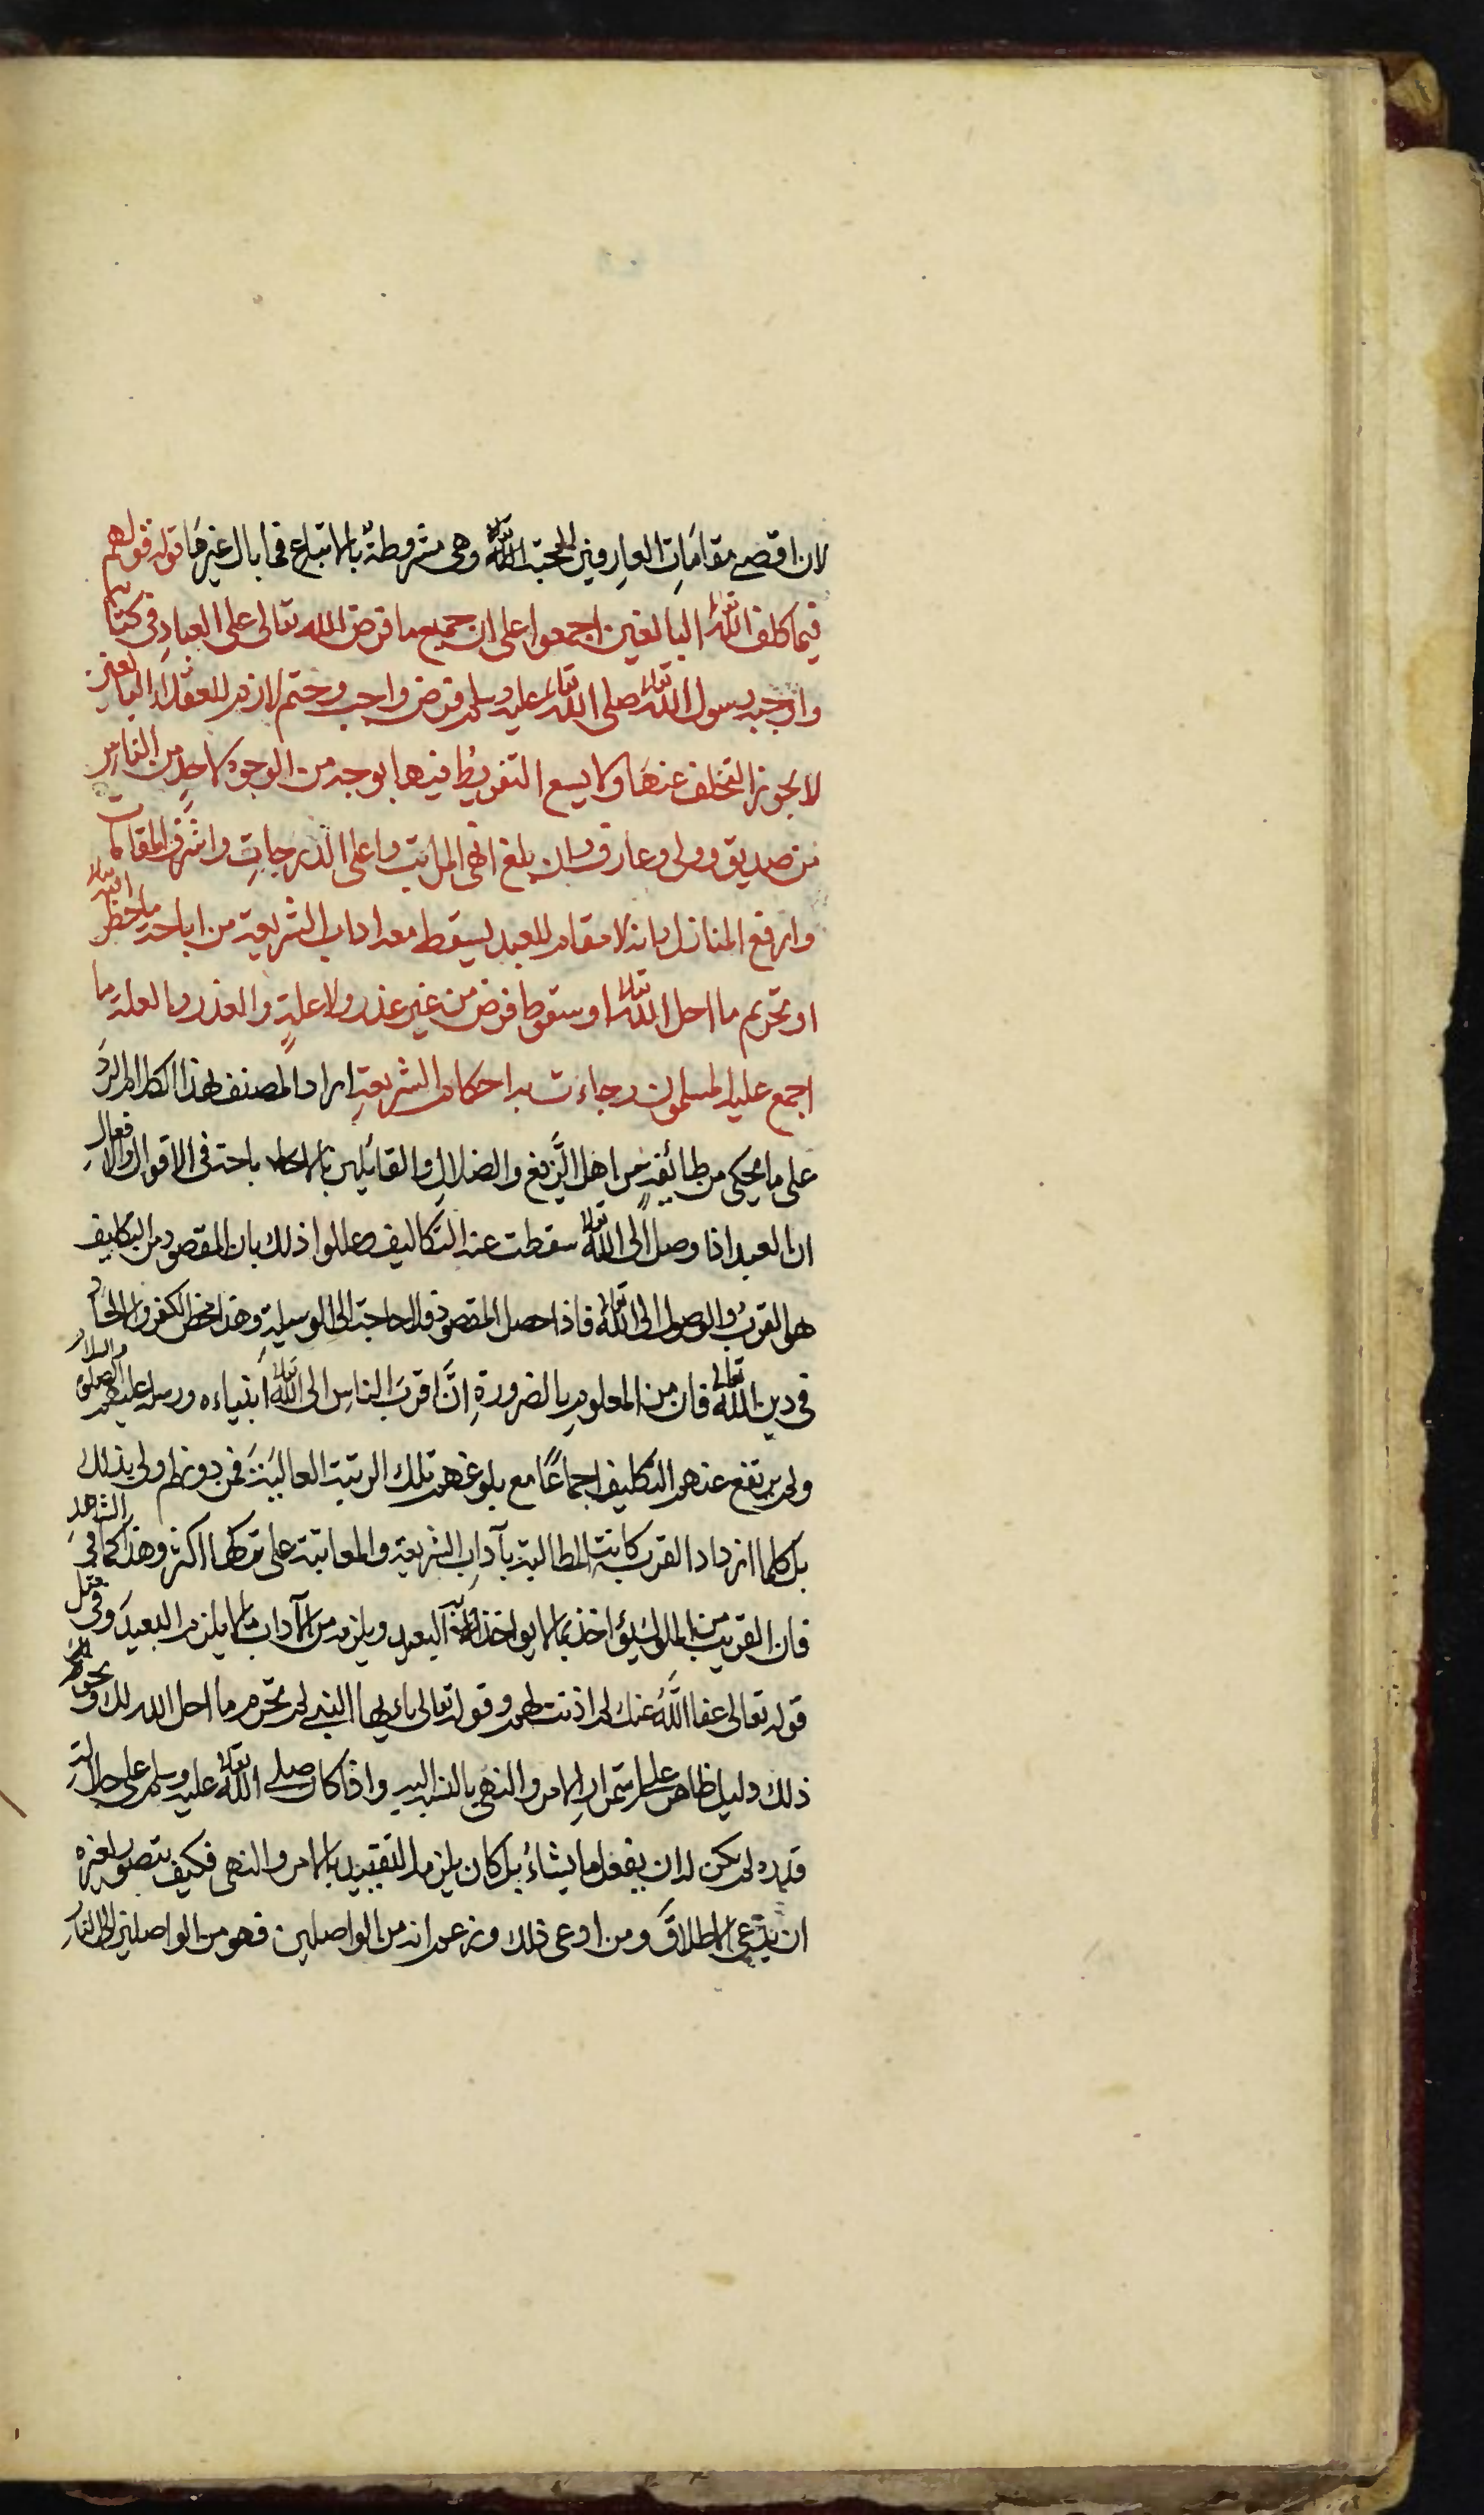 لان اقصى مقامات العارفين المحبة لله تعالى وهى مشروطة بالاتباع فما بال غيرها قوله قولهم
فيما كلف الله تعالى البالغين اجمعوا على ان جميع ما فرض الله تعالى على العباد فى كتابه
واوجبه رسول الله تعالى صلى الله تعالى عليه وسلم فرض واجب وحتم لازم للعقلاء البالغين
لا يجوز التخلف عنها ولا يسع التفريط فيها بوجه من الوجوه لاحد من الناس
من صديق وولى وعارف وان بلغ انهى المراتب واعلى الدرجات واشرف المقامات
وارفع المنازل وانه لا مقام للعبد يسقط معه اداب الشريعة من اباحة ما حظر الله تعالى
او تحريم ما احل الله تعالى او سقوط فرض من غير عذر ولا علة والعذر والعلة ما
اجمع عليه المسلمون وجاءت به احكام الشريعة اراد المصنف بهذا الكلام الرد
على ما يحكى من طائفة من اهل الزيغ والضلال والقائلين باحة فى الاقوال والافعال
ان العبد اذا وصل الى الله تعالى سقطت عنه التكاليف وعللوا ذلك بان المقصود من التكليف
هو القرب والوصول الى الله تعالى فاذا حصل المقصود فلا حاجة الى الوسيلة وهذا محض الكفر والالحاد
فى دين الله تعالى فان من المعلوم بالضرورة ان اقرب الناس الى الله تعالى انبياءه ورسله عليهم الصلوة والسلام
ولم يرتفع عنهم التكليف اجماعا مع بلوغهم تلك الرتبة العالية فمن دونهم اولى بذلك
بل كلما ازداد القرب كانت المطالبة بآداب الشريعة والمعاتبة على تركها اكثر وهذا كما فى الشاهد
فان القريب من الملوك يؤاخذ بما لا يؤاخذ به البعيد ويلزمه من الآداب ما لا يلزم البعيد وفى مثل
قوله تعالى عفا الله عنك لم اذنت لهم وقوله تعالى يايها النبى لم تحرم ما احل الله لك ونحو
ذلك دليل ظاهر على استمرار الامر والنهى بالنسبة اليه واذا كان صلى الله تعالى عليه وسلم على جلالة
قدره لم يكن له ان يفعل ما يشاء بل كان يلزمه التقييد بالامر والنهى فكيف يتصور لغيره
ان يدعى الاطلاق ومن ادعى ذلك وزعم انه من الواصلين فهو من الواصلين الى النار